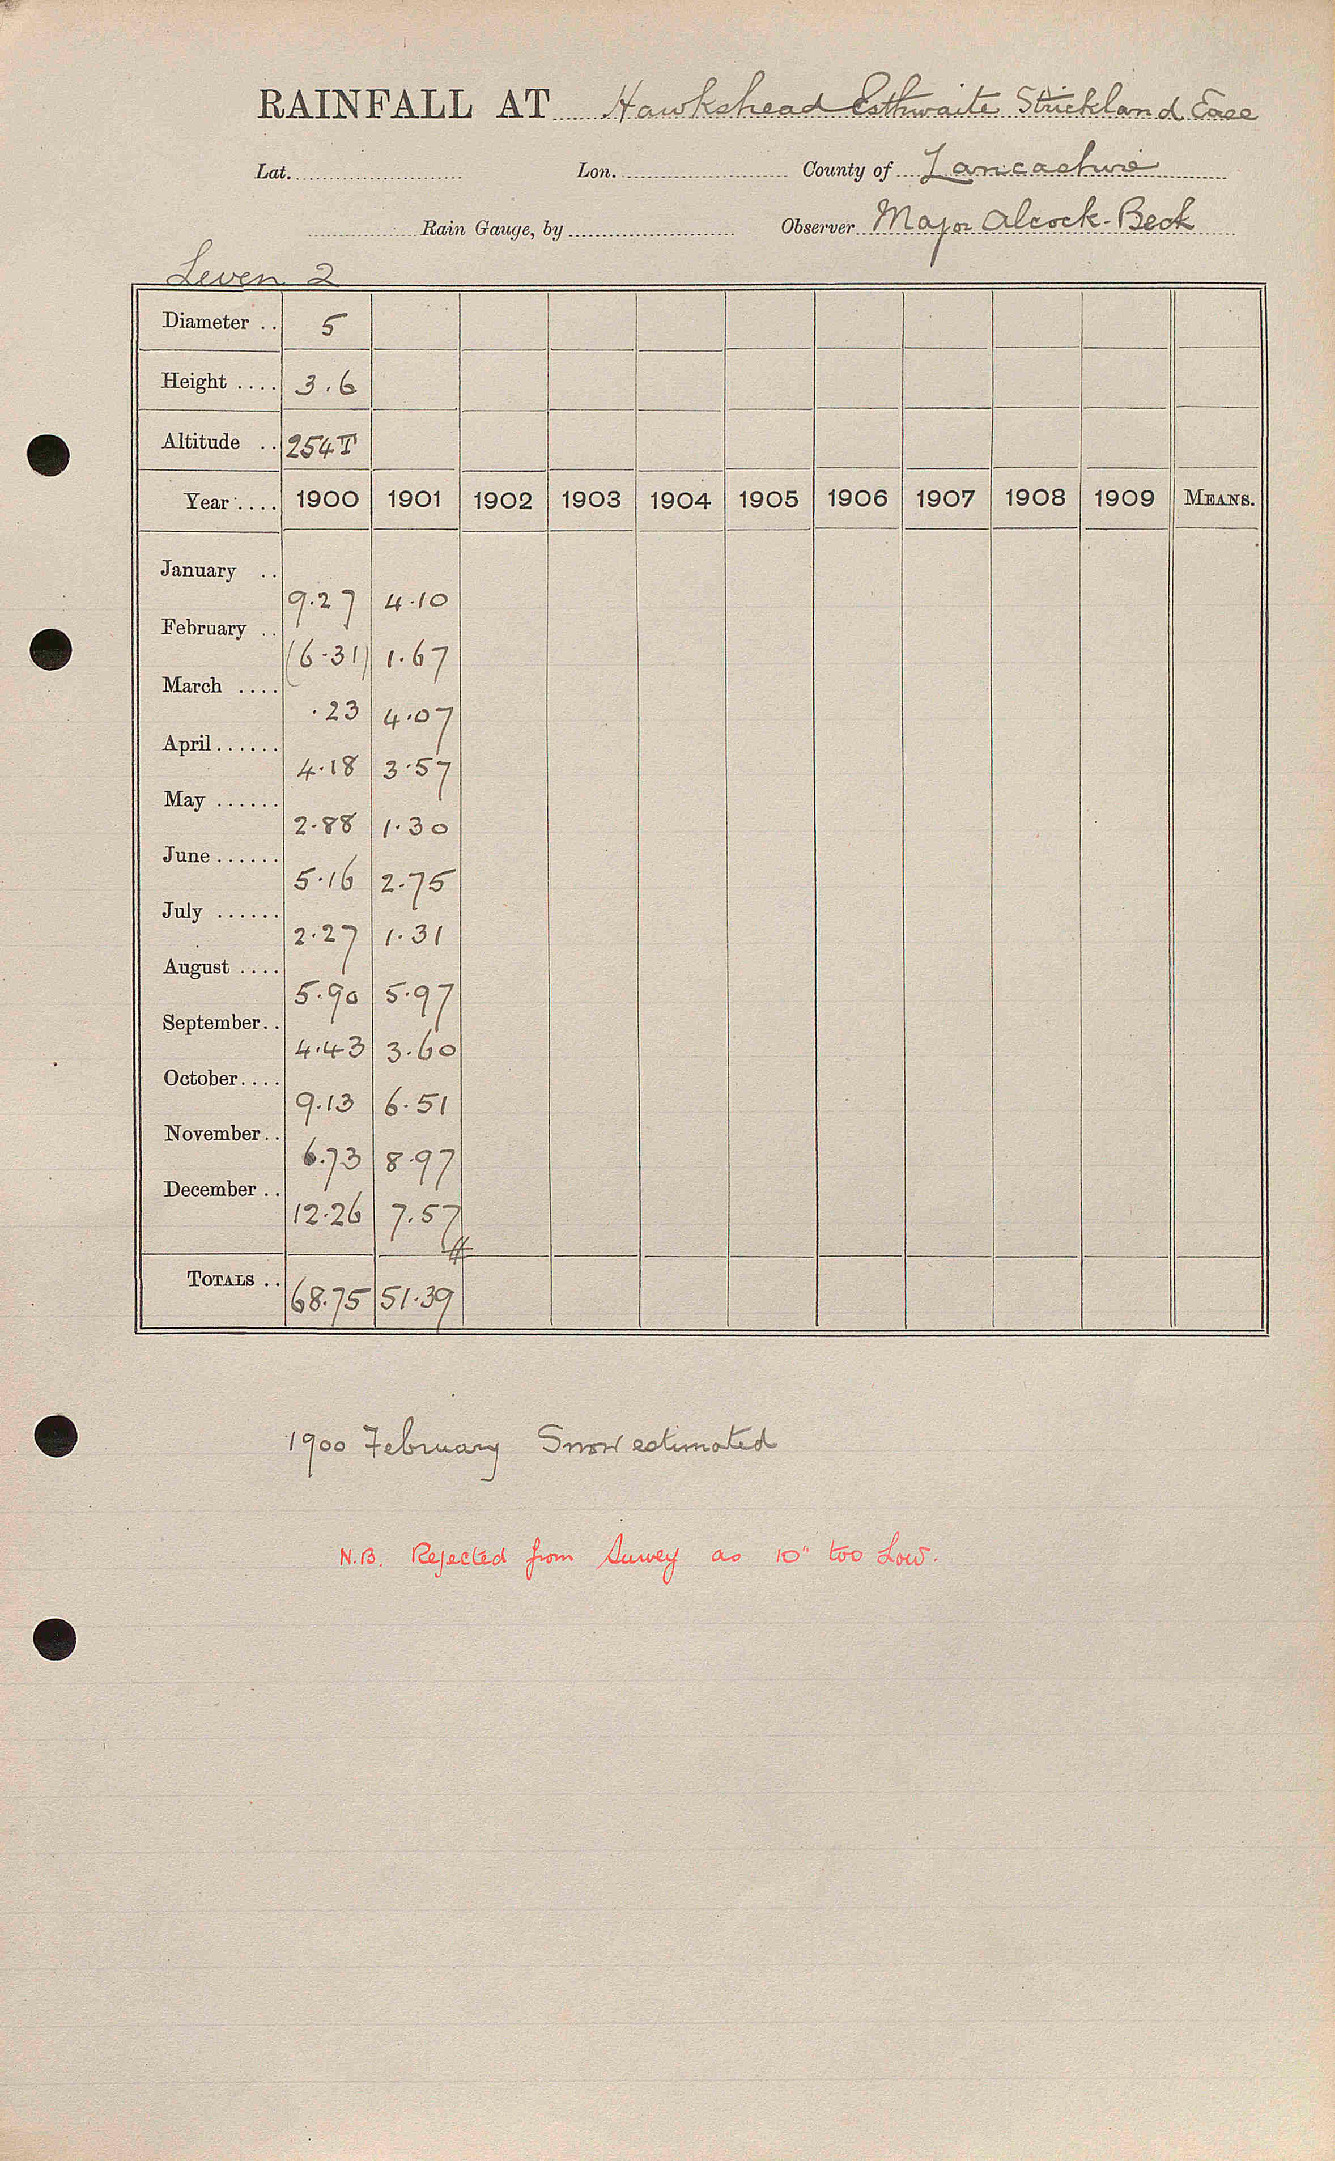 RAINFALL AT Hawkshead Esthwaite Strickland Ease
Lat. Lon. County of Lancashire
Rain Gauge, by Observer Major Alcock-Beck
Leven 2
Diameter .. 5
Height .... 3.6
Altitude .. 254 T
Year .... 1900 1901 1902 1903 1904 1905 1906 1907 1908 1909 MEANS.
January .. 9.27 4.10
February .. (6.31) 1.67
March .... .23 4.07
April ...... 4.18 3.57
May ...... 2.88 1.30
June ...... 5.16 2.75
July ...... 2.27 1.31
August .... 5.90 5.97
September .. 4.43 3.60
October .... 9.13 6.51
November .. 6.73 8.97
December .. 12.26 7.57
TOTALS .. 68.75 51.39
1900 February Snow estimated
N.B. Rejected from Survey as 10" too Low.